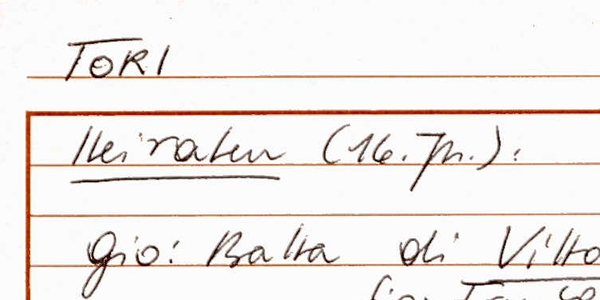 TORI
Heiraten (16. Jh.):
Gio: Batta di Vitto